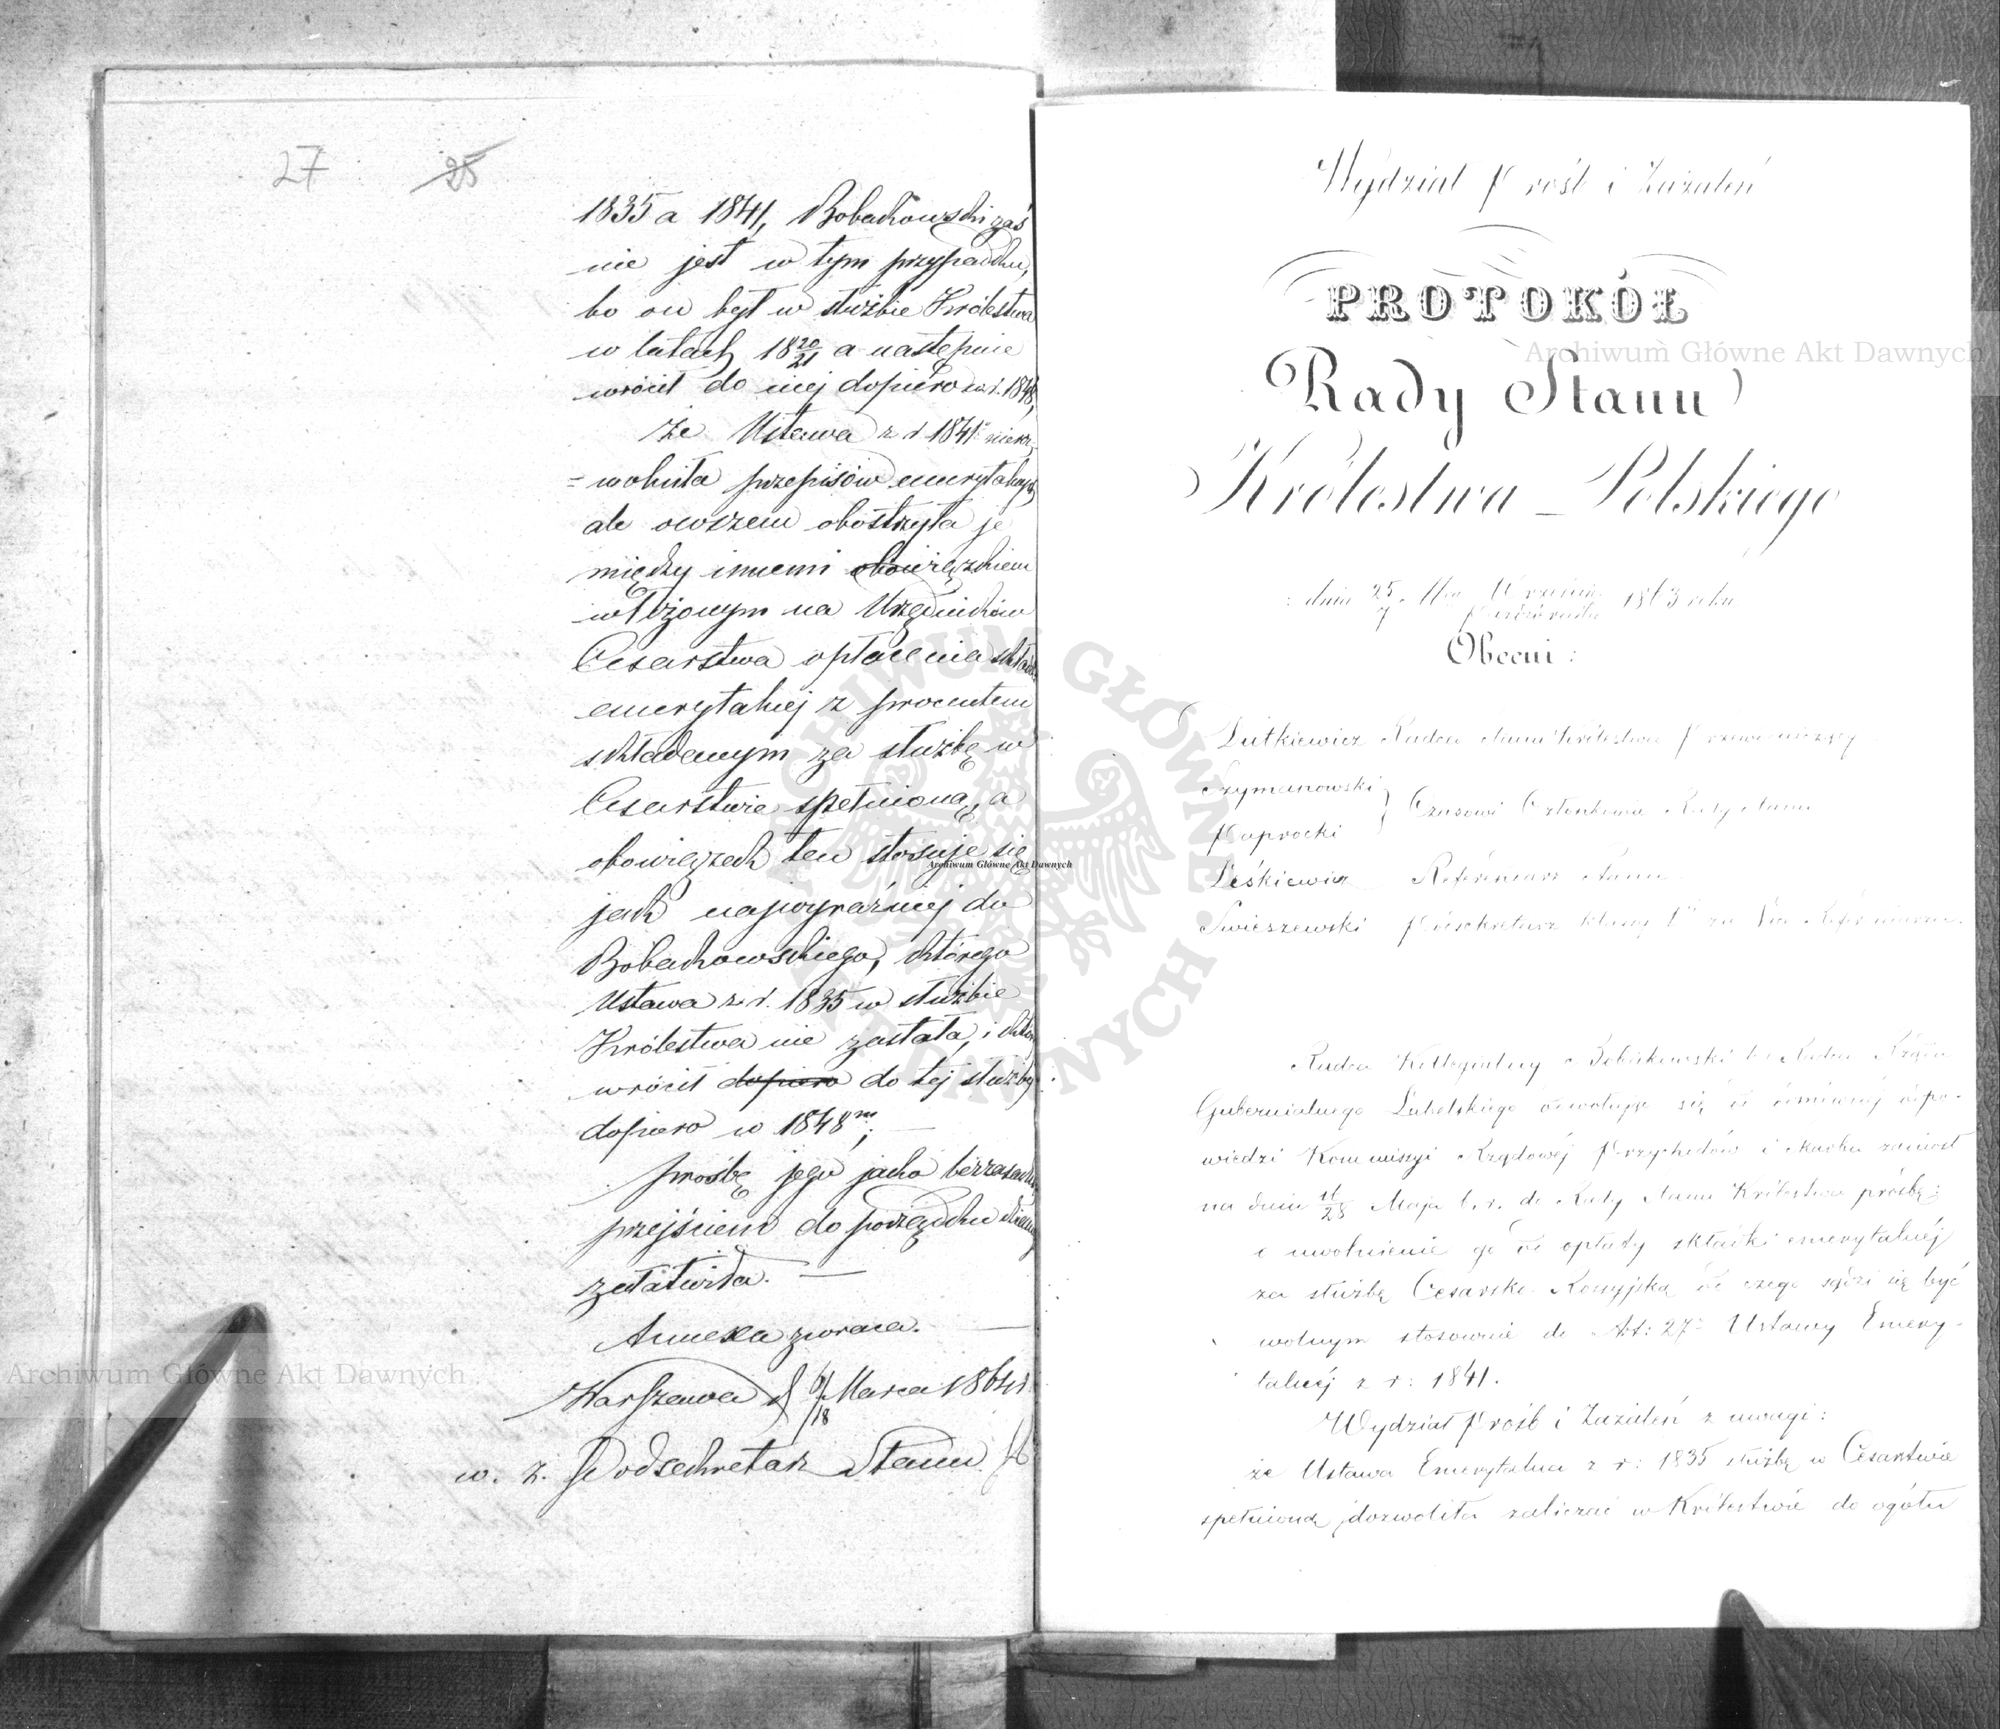 27 25
1835 a 1841, Bobakowski zaś
nie jest w tym przypadku,
bo on był w służbie Królestwa
w latach 18 20/21 a następnie
wrócił do niej dopiero w r. 1848,
że Ustawa z r 1841
= wolniła przepisów emerytalnych
ale owszem obostrzyła je
między innemi obowiązkiem
włożonym na Urzędników
Cesarstwa opłacenia składki
emerytalnej z procentem
składanym za służbę w
Cesarstwie spełnioną, a
obowiązek ten stosuje się
jak najwyraźniej do
Bobakowskiego, którego
Ustawa z r. 1835 w służbie
Królestwa nie zastała, i który
wrócił dopiero do tej służby
dopiero w 1848 m;
prośbę jego jako bezzasadną
przejściem do porządku
załatwiła. —
Annexa zwraca. —
Warszawa d 6/18 Marca 1864 r.
w. z. Podsekretarz Stanu
Wydział Próśb i Zażaleń
PROTOKÓŁ
Rady Stanu
Królestwa Polskiego
z dnia 25/7 Września/Października 1863 roku
Obecni:
Lutkiewicz Radca Stanu Królestwa Przewodniczący
Szymanowski
Paprocki } Czasowi Członkowie Rady Stanu
Leśkiewicz Referendarz Stanu
Swieszewski Podsekretarz klassy I za Vice Referendarza.
Radca Kollegialny Bobakowski b. Radca Rządu
Gubernialnego Lubelskiego odwołując się od odmównej odpo-
wiedzi Kommissyi Rządowej Przychodów i Skarbu zaniósł
na dniu 16/28 Maja b. r. do Rady Stanu Królestwa prośbę:
o uwolnienie go od opłaty składki emerytalnej
za służbę Cesarsko Rossyjską od czego sądzi się być
wolnym stosownie do Art: 27 Ustawy Emery-
talnej z r: 1841.
Wydział Próśb i Zażaleń z uwagi:
że Ustawa Emerytalna z r: 1835 służbę w Cesarstwie
spełnioną, dozwoliła zaliczać w Królestwie do ogółu
Archiwum Główne Akt Dawnych
Archiwum Główne Akt Dawnych
Archiwum Główne Akt Dawnych
ARCHIWUM GŁÓWNE AKT DAWNYCH